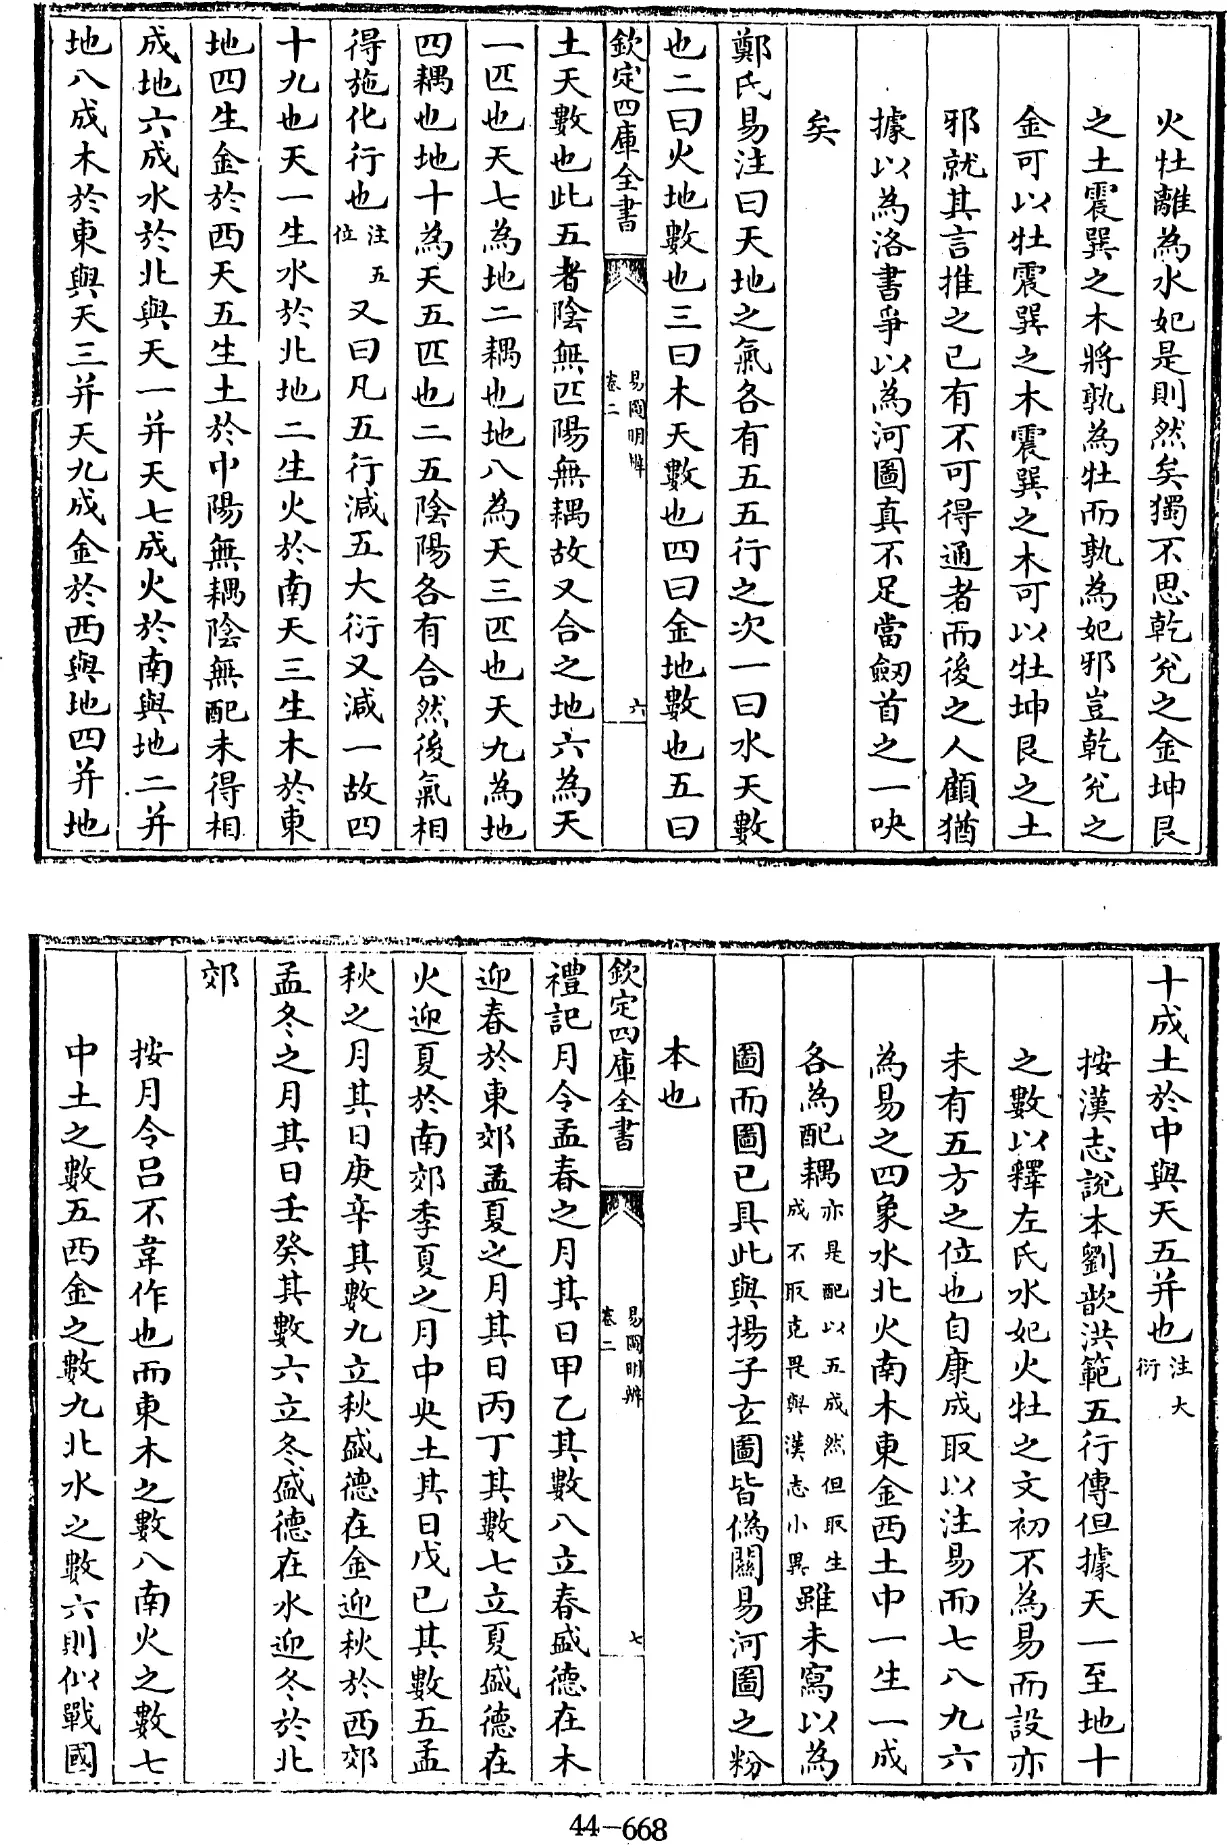 火牡離為水妃是則然矣獨不思乾兌之金坤艮
之土震巽之木將孰為牡而孰為妃邪豈乾兌之
金可以牡震巽之木震巽之木可以牡坤艮之土
邪就其言推之已有不可得通者而後之人顧猶
據以為洛書爭以為河圖真不足當劔首之一吷
矣
鄭氏易注曰天地之氣各有五五行之次一曰水天數
也二曰火地數也三曰木天數也四曰金地數也五曰
欽定四庫全書
易圖明辨
卷二
六
土天數也此五者陰無匹陽無耦故又合之地六為天
一匹也天七為地二耦也地八為天三匹也天九為地
四耦也地十為天五匹也二五陰陽各有合然後氣相
得施化行也注五位又曰凡五行減五大衍又減一故四
十九也天一生水於北地二生火於南天三生木於東
地四生金於西天五生土於中陽無耦陰無配未得相
成地六成水於北與天一并天七成火於南與地二并
地八成木於東與天三并天九成金於西與地四并地
十成土於中與天五并也注大衍
按漢志說本劉歆洪範五行傳但據天一至地十
之數以釋左氏水妃火牡之文初不為易而設亦
未有五方之位也自康成取以注易而七八九六
為易之四象水北火南木東金西土中一生一成
各為配耦亦是配以五成然但取生成不取克畏與漢志小異雖未寫以為
圖而圖已具此與揚子玄圖皆偽關易河圖之粉
本也
欽定四庫全書
易圖明辨
卷二
七
禮記月令孟春之月其日甲乙其數八立春盛德在木
迎春於東郊孟夏之月其日丙丁其數七立夏盛德在
火迎夏於南郊季夏之月中央土其日戊己其數五孟
秋之月其日庚辛其數九立秋盛德在金迎秋於西郊
孟冬之月其日壬癸其數六立冬盛德在水迎冬於北
郊
按月令呂不韋作也而東木之數八南火之數七
中土之數五西金之數九北水之數六則似戰國
44-668